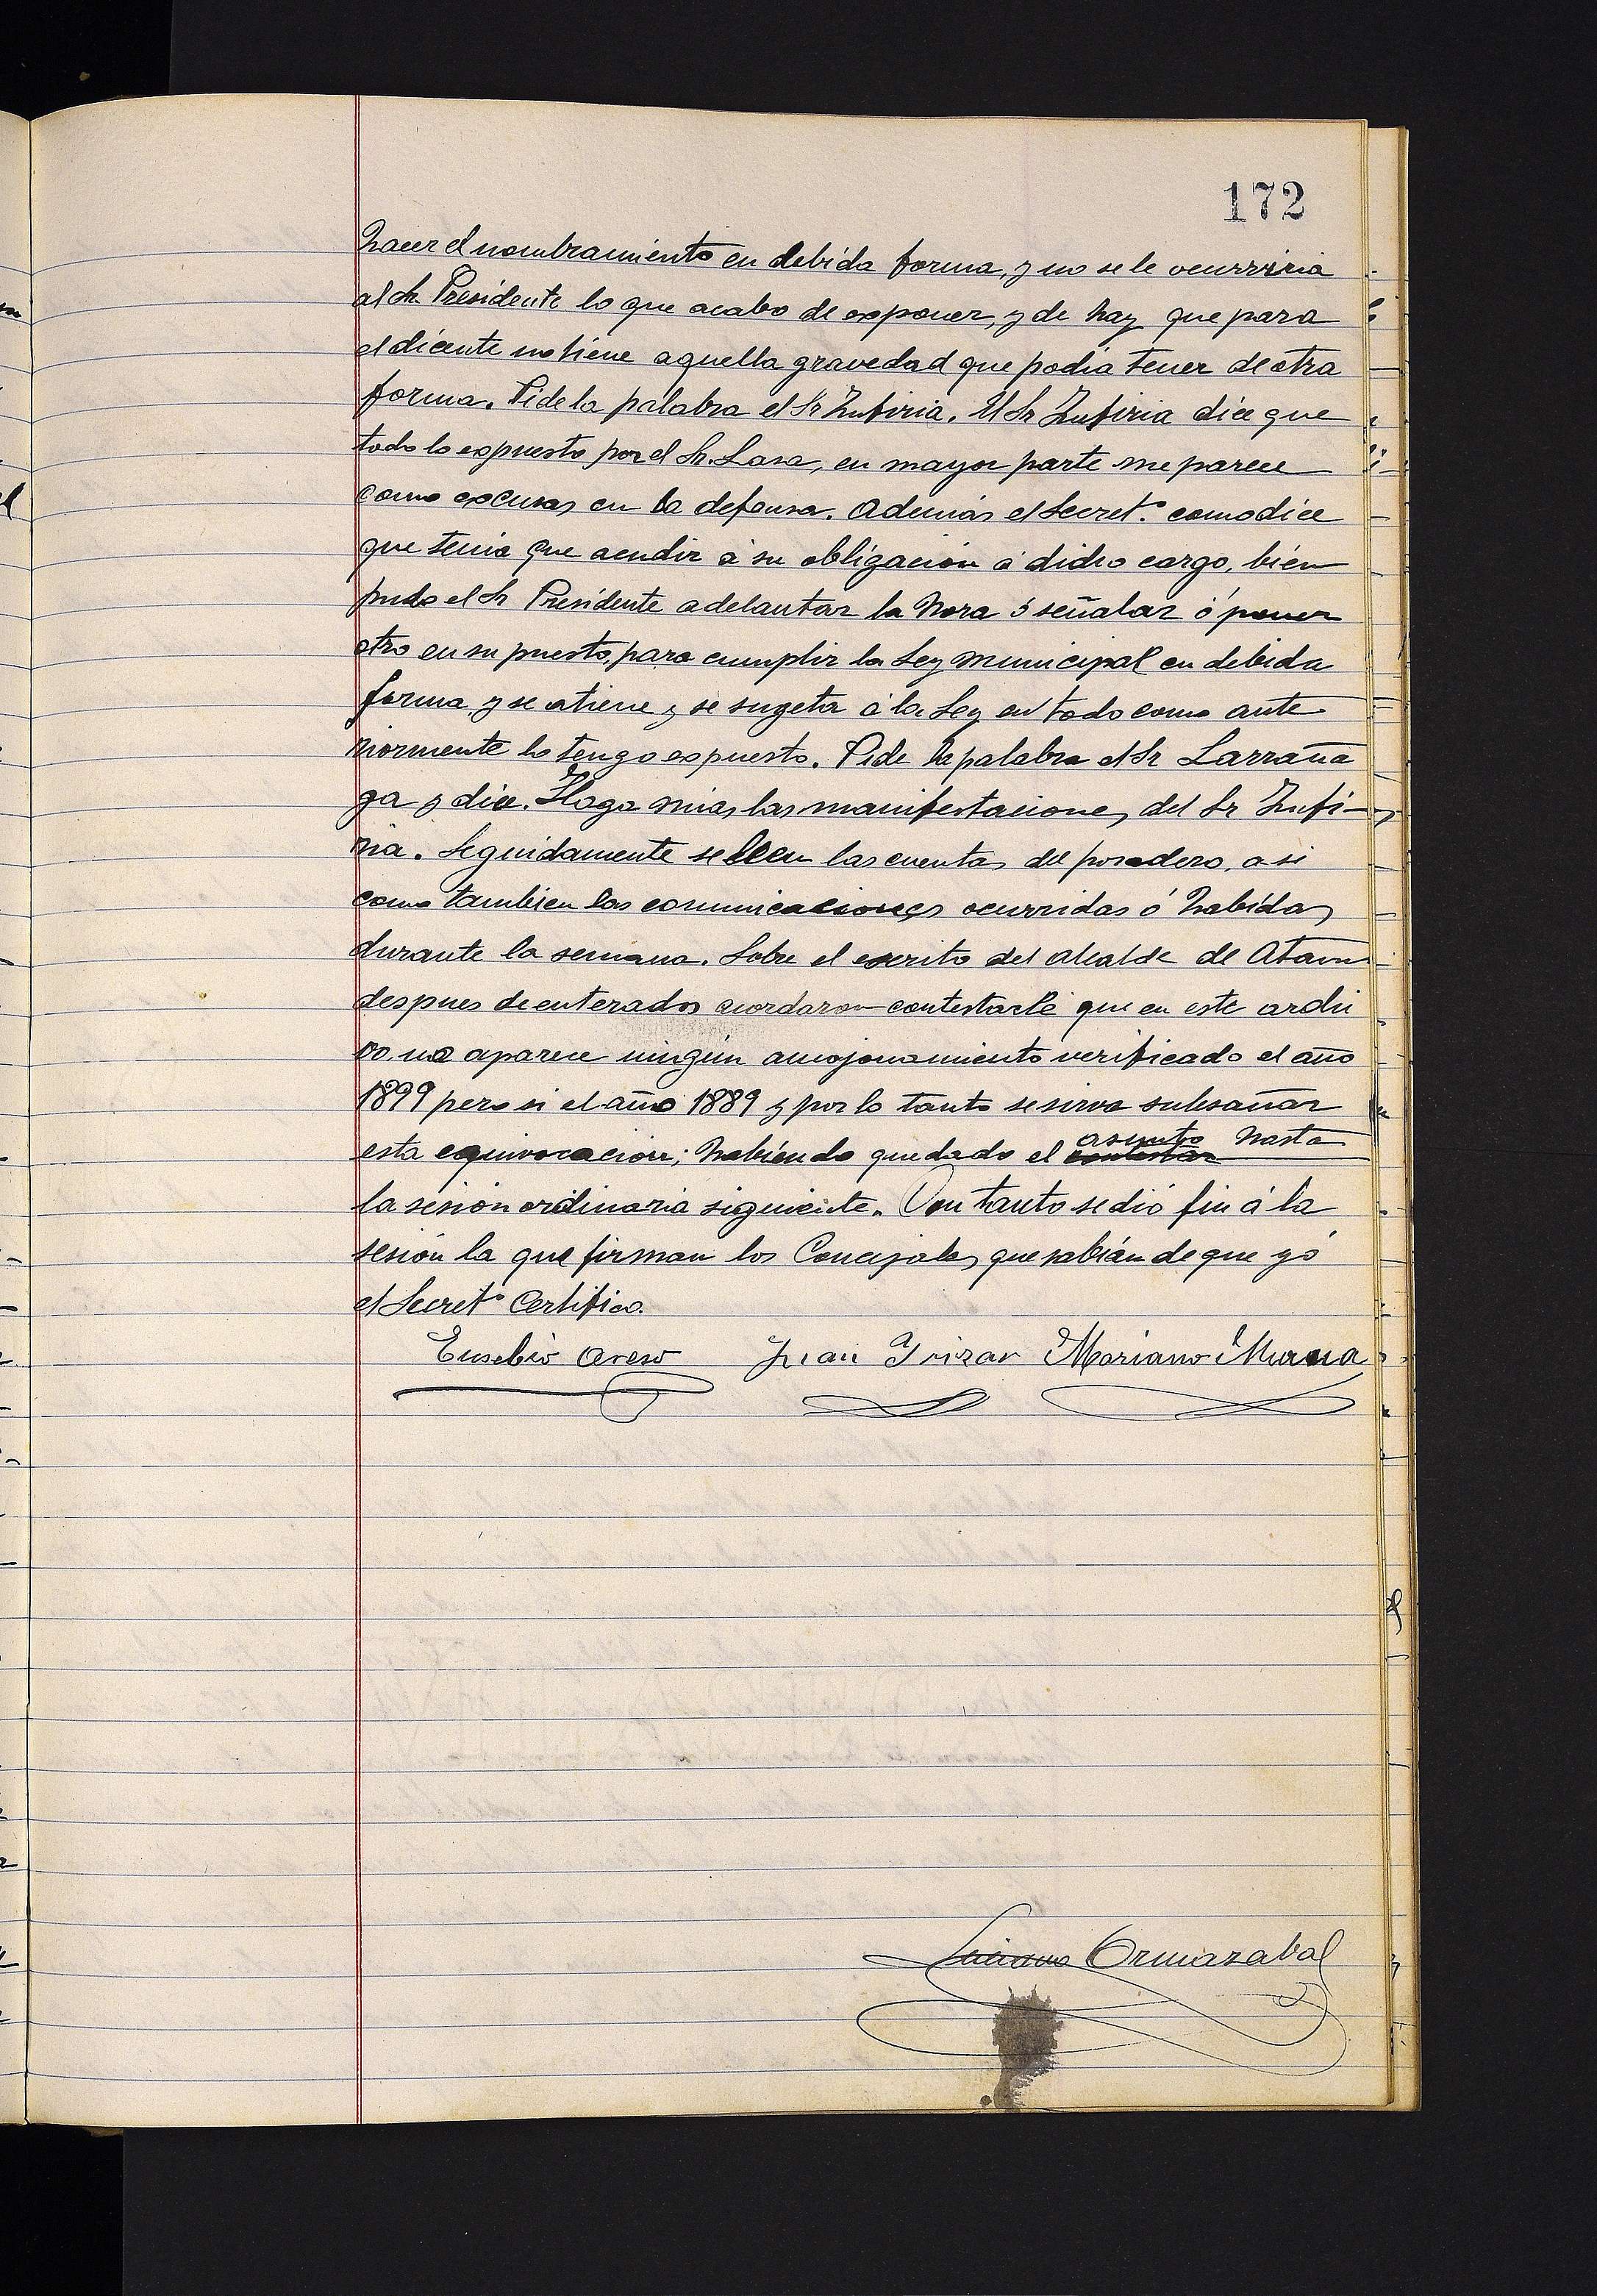 172
hacer el nombramiento en debida forma, y no se le ocurriria
al Sr Presidente lo que acabo de exponer, y de hay que para
el dicente no tiene aquella gravedad que podia tener de otra
forma. Pide la palabra el Sr Zufiria. El Sr Zufiria dice que
todo lo expuesto por el Sr. Lasa, en mayor parte me parece
como excusas en la defensa. Además el Secret.º como dice
que tenia que acudir á su obligación ó dicho cargo, bien
pudo el Sr Presidente adelantar la hora ó señalar ó poner
otro en su puesto, para cumplir la Ley municipal en debida
forma, y se atiene y se sugeta á la Ley en todo como ante
riormente lo tengo expuesto. Pide la palabra el Sr Larraña
ga y dice. Hago mias las manifestaciones del Sr Zufi-
ria. Seguidamente se leen las cuentas del posadero, asi
como tambien las comunicaciones ocurridas ó habidas
durante la semana. Sobre el escrito del alcalde de Ataun
despues de enterados acordaron contestarle que en este archi
vo, no aparece ningún amojonamiento verificado el año
1899 pero si el año 1889 y por lo tanto se sirva subsañar
esta equivocación; habiendo quedado el contestar asunto hasta
la sesión ordinaria siguiente. Con tanto se dió fin á la
sesión la que firman los Concejales que sabián de que yó
el Secretº Certifico.
Eusebio Areso Juan Irizar Mariano Murua
Luciano Ormazabal